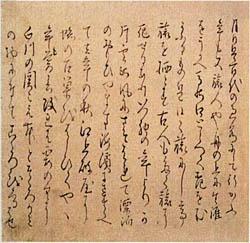 月日は百代の過客にして行かふ
年も又旅人也舟の上に生涯
をうかへ馬の口とらへて老を
むかふる物は日々旅にして
旅を栖とす古人も多く旅に
死せるありいつれの年よりか
片雲の風にさそはれて漂泊
のおもひやます海濱にさすらへ
て去年の秋江上の破屋に
蜘の古巣をはらひてやゝ
年も暮春立る霞の空に
白川の関こえんとそゝろ
の物につきてこゝろをくるはせ